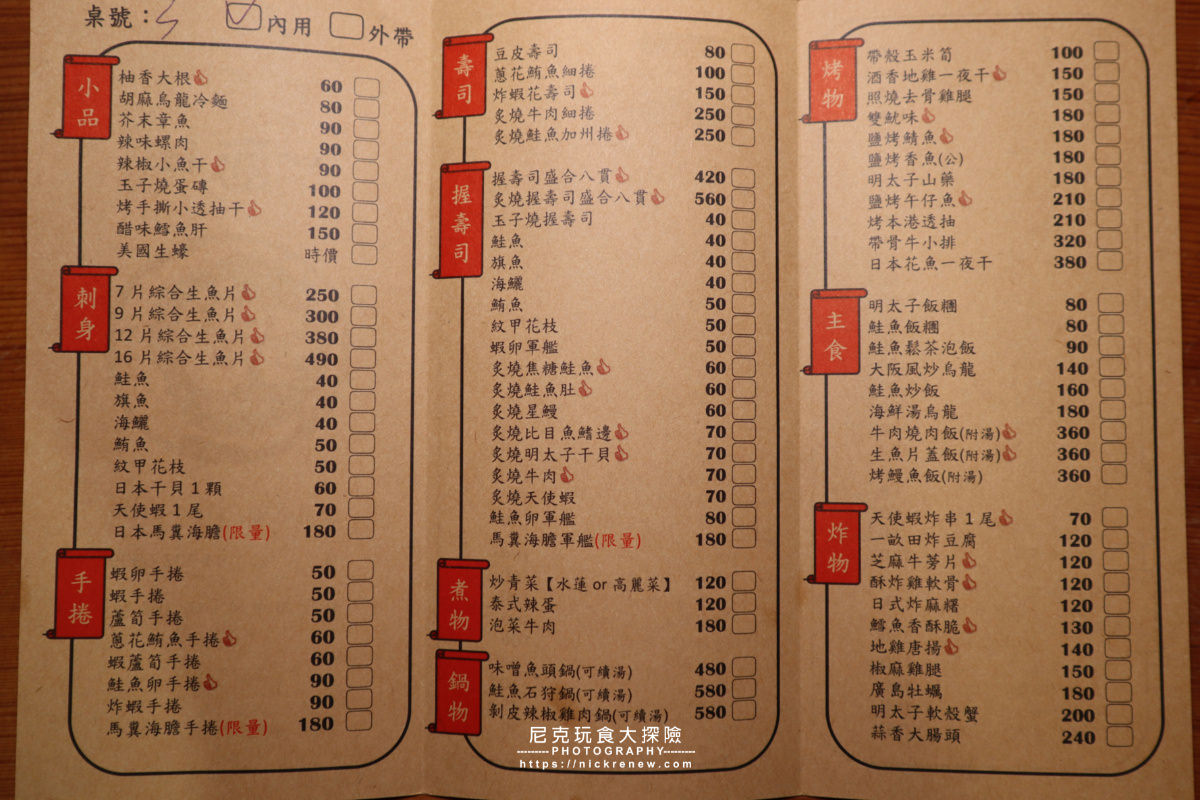 桌號：
內用 外帶
小品
柚香大根 60
胡麻烏龍冷麵 80
芥末章魚 90
辣味螺肉 90
辣椒小魚干 90
玉子燒蛋磚 100
烤手撕小透抽干 120
醋味鱈魚肝 150
美國生蠔 時價
刺身
7 片綜合生魚片 250
9 片綜合生魚片 300
12 片綜合生魚片 380
16 片綜合生魚片 490
鮭魚 40
旗魚 40
海鱺 40
鮪魚 50
紋甲花枝 50
日本干貝 1 顆 60
天使蝦 1 尾 70
日本馬糞海膽(限量) 180
手捲
蝦卵手捲 50
蝦手捲 50
蘆筍手捲 50
蔥花鮪魚手捲 60
蝦蘆筍手捲 60
鮭魚卵手捲 90
炸蝦手捲 90
馬糞海膽手捲(限量) 180
壽司
豆皮壽司 80
蔥花鮪魚細捲 100
炸蝦花壽司 150
炙燒牛肉細捲 250
炙燒鮭魚加州捲 250
握壽司
握壽司盛合八貫 420
炙燒握壽司盛合八貫 560
玉子燒握壽司 40
鮭魚 40
旗魚 40
海鱺 40
鮪魚 50
紋甲花枝 50
蝦卵軍艦 50
炙燒焦糖鮭魚 60
炙燒鮭魚肚 60
炙燒星鰻 60
炙燒比目魚鰭邊 70
炙燒明太子干貝 70
炙燒牛肉 70
炙燒天使蝦 70
鮭魚卵軍艦 80
馬糞海膽軍艦(限量) 180
煮物
炒青菜【水蓮 or 高麗菜】 120
泰式辣蛋 120
泡菜牛肉 180
鍋物
味噌魚頭鍋(可續湯) 480
鮭魚石狩鍋(可續湯) 580
剝皮辣椒雞肉鍋(可續湯) 580
烤物
帶殼玉米筍 100
酒香地雞一夜干 150
照燒去骨雞腿 150
雙魷味 180
鹽烤鯖魚 180
鹽烤香魚(公) 180
明太子山藥 180
鹽烤午仔魚 210
烤本港透抽 210
帶骨牛小排 320
日本花魚一夜干 380
主食
明太子飯糰 80
鮭魚飯糰 80
鮭魚鬆茶泡飯 90
大阪風炒烏龍 140
鮭魚炒飯 160
海鮮湯烏龍 180
牛肉燒肉飯(附湯) 360
生魚片蓋飯(附湯) 360
烤鰻魚飯(附湯) 360
炸物
天使蝦炸串 1 尾 70
一畝田炸豆腐 120
芝麻牛蒡片 120
酥炸雞軟骨 120
日式炸麻糬 120
鱈魚香酥脆 130
地雞唐揚 140
椒麻雞腿 150
廣島牡蠣 180
明太子軟殼蟹 200
蒜香大腸頭 240
尼克玩食大探險
---------PHOTOGRAPHY---------
https://nickrenew.com/